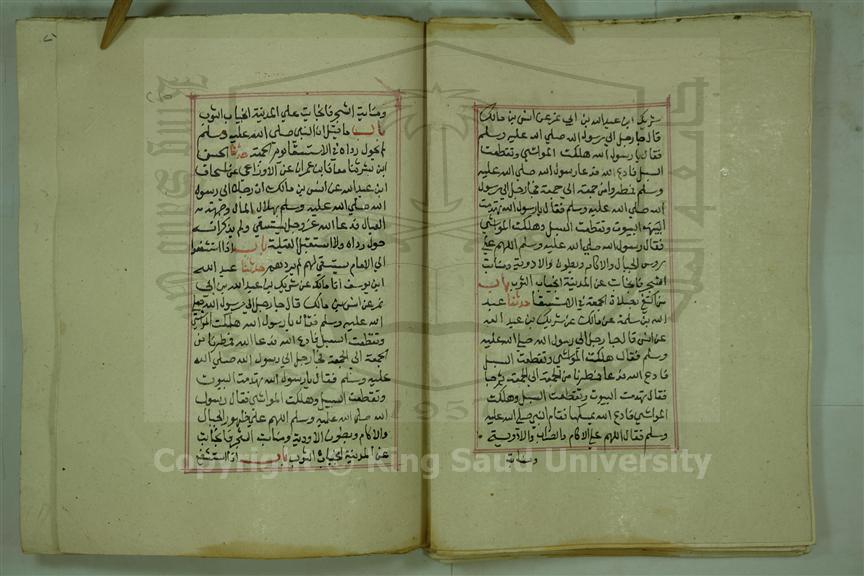 شريك ابن عبد الله بن ابي نمر عن انس بن مالك
قال جا رجل الى رسول الله صلى الله عليه وسلم
فقال يا رسول الله هلكت المواشي وتقطعت
السبل فادع الله فدعا رسول الله صلى الله عليه
وسلم فمطروا من جمعة الى جمعة فجا رجل الى رسول
الله صلى الله عليه وسلم فقال يا رسول الله تهدمت
البيوت وتقطعت السبل وهلكت المواشي
فقال رسول الله صلى الله عليه وسلم اللهم على
روس الجبال والاكام وبطون الاودية ومنابت
الشجر فانجابت عن المدينة انجياب الثوب باب
من اكتفى بصلاة الجمعة في الاستسقا حدثنا عبد
الله بن مسلمة عن مالك عن شريك بن عبد الله
عن انس قال جا رجل الى رسول الله صلى الله عليه
وسلم فقال هلكت المواشي وتقطعت السبل
فادع الله فدعا فمطرنا من الجمعة الى الجمعة ثم جا
فقال تهدمت البيوت وتقطعت السبل وهلكت
المواشي فادع الله يمسكها فقام النبي صلى الله عليه
وسلم فقال اللهم على الاكام والظراب والاودية
ومنابت
ومنابت الشجر فانجابت على المدينة انجياب الثوب
باب ما قيل ان النبي صلى الله عليه وسلم
لم يحول رداه في الاستسقا يوم الجمعة حدثنا الحسن
ابن بشر ثنا معافا بن عمران عن الاوزاعي عن اسحاق
ابن عبد الله عن انس بن مالك ان رجلا شكى الى رسول
الله صلى الله عليه وسلم هلاك المال وجهد
العيال فدعا الله عز وجل يستسقي ولم يذكر انه
حول رداه ولا استقبل القبلة باب اذا استشفعوا
الى الامام يستسقي لهم لم يردهم حدثنا عبد الله
ابن يوسف انا مالك عن شريك بن عبد الله بن ابي
نمر عن انس بن مالك قال جا رجل الى رسول الله صلى
الله عليه وسلم فقال يا رسول الله هلكت المواشي
وتقطعت السبل فادع الله فدعا الله فمطرنا من
الجمعة الى الجمعة فجا رجل الى رسول الله صلى الله
عليه وسلم فقال يا رسول الله تهدمت البيوت
وتقطعت السبل وهلكت المواشي فقال رسول
الله صلى الله عليه وسلم اللهم على ظهور الجبال
والاكام وبطون الاودية ومنابت الشجر فانجابت
عن المدينة انجياب الثوب باب اذا استشفع
Copyright © King Saud University
1957